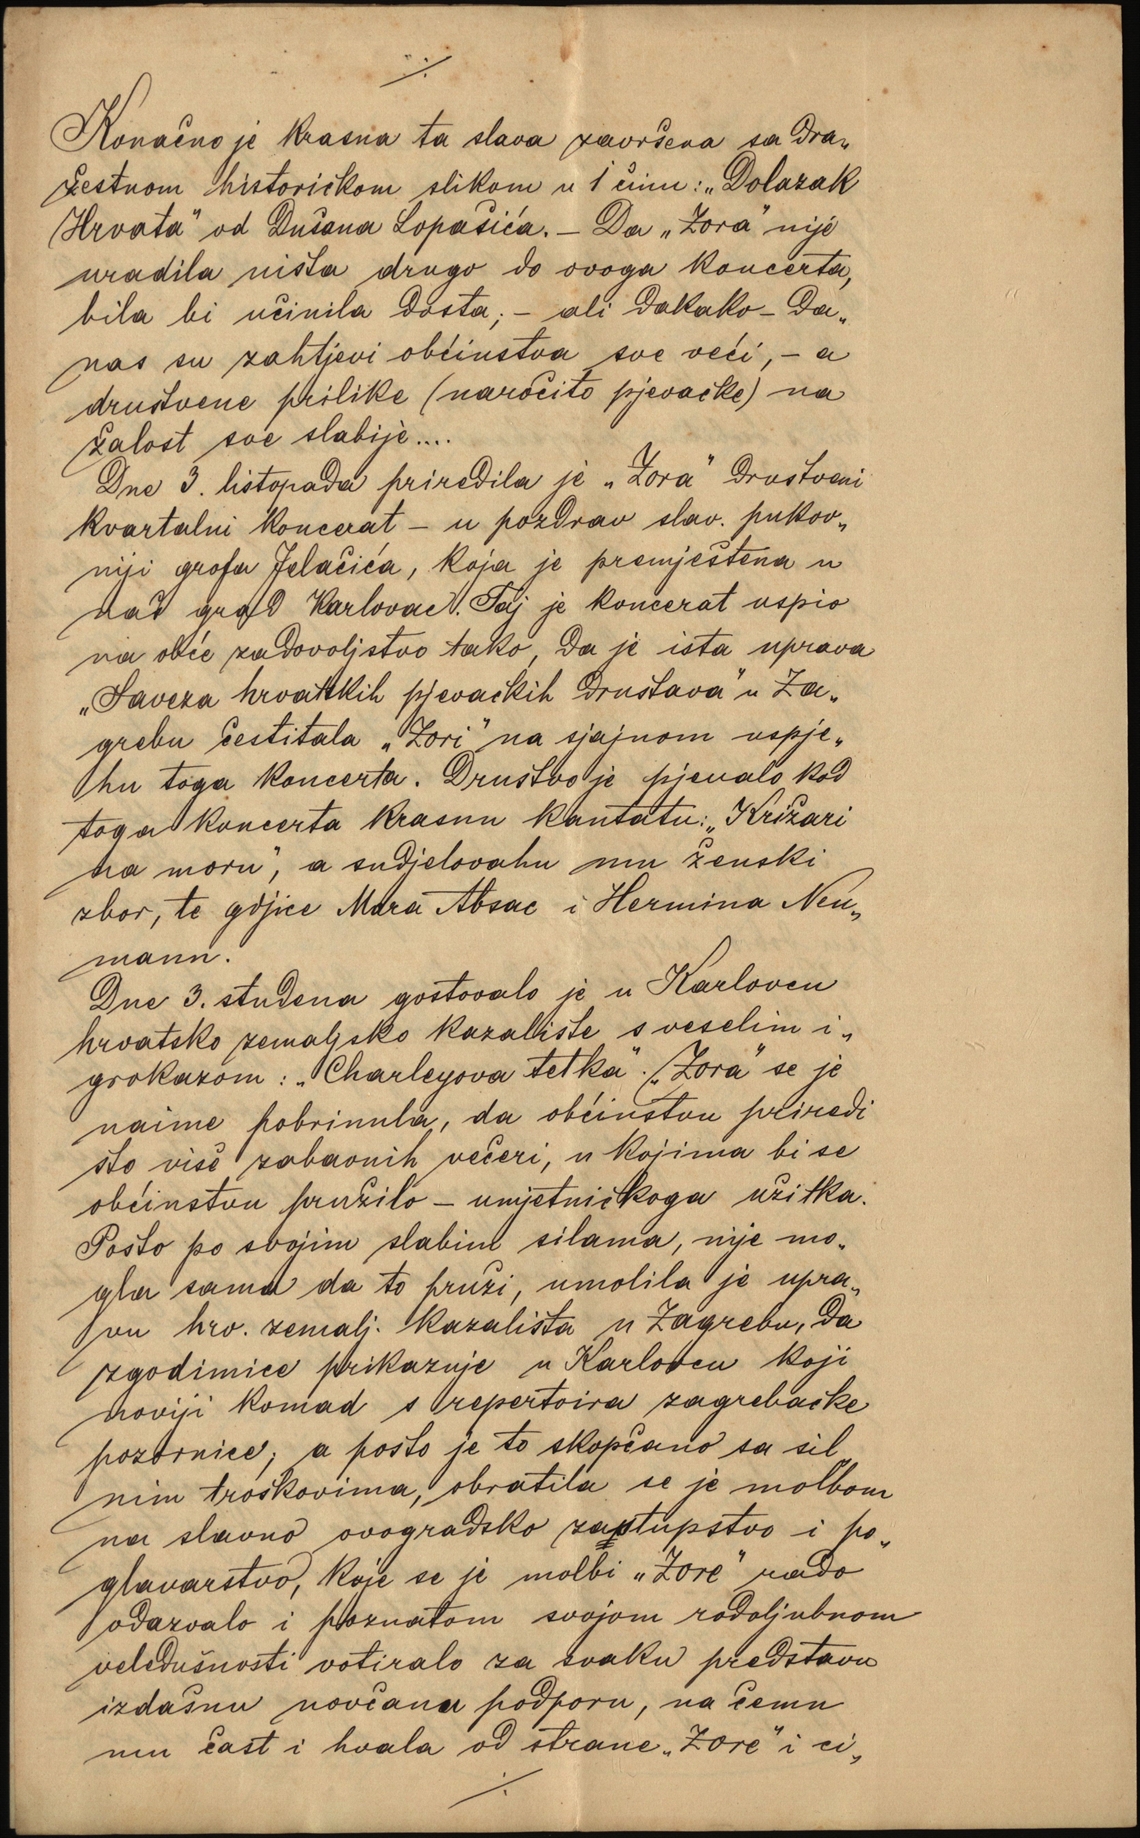 ·/·
Konačno je krasna ta slava završena sa dra„
žestnom historičkom slikom u 1 činu: „Dolazak
Hrvata" od Dušana Lopašića. – Da „Zora" nije
uradila ništa drugo do ovoga koncerta,
bila bi učinila dosta; – ali dakako – da„
nas su zahtjevi obćinstva sve veći, – a
društvene prilike (naročito pjevačke) na
žalost sve slabije....
Dne 3. listopada priredila je „Zora" društveni
kvartalni koncerat – u pozdrav slav. pukov„
niji grofa Jelačića, koja je premještena u
naš grad Karlovac. Taj je koncerat uspio
na obće zadovoljstvo tako, da je ista uprava
„Saveza hrvatskih pjevačkih društava" u Za„
grebu čestitala „Zori" na sjajnom uspje„
hu toga koncerta. Društvo je pjevalo kod
toga koncerta krasnu kantatu: „Križari
na moru", a sudjelovahu mu ženski
zbor, te gdjice Mara Absac i Hermina Neu„
mann.
Dne 3. studena gostovalo je u Karlovcu
hrvatsko zemaljsko kazalište s veselim i„
grokazom: „Charleyova tetka". „Zora" se je
naime pobrinula, da obćinstvu priredi
što više zabavnih večeri, u kojima bi se
obćinstvu pružilo – umjetničkoga užitka.
Pošto po svojim slabim silama, nije mo„
gla sama da to pruži, umolila je upra„
vu hrv. zemalj. kazališta u Zagrebu, da
zgodimice prikazuje u Karlovcu koji
noviji komad s repertoira zagrebačke
pozornice; a pošto je to skopčano sa sil„
nim troškovima, obratila se je molbom
na slavno ovogradsko zastupstvo i po„
glavarstvo, koje se je molbi „Zore" rado
odazvalo i poznatom svojom rodoljubnom
veledušnosti votiralo za svaku predstavu
izdašnu novčanu podporu, na čemu
mu čast i hvala od strane „Zore" i ci„
·/·